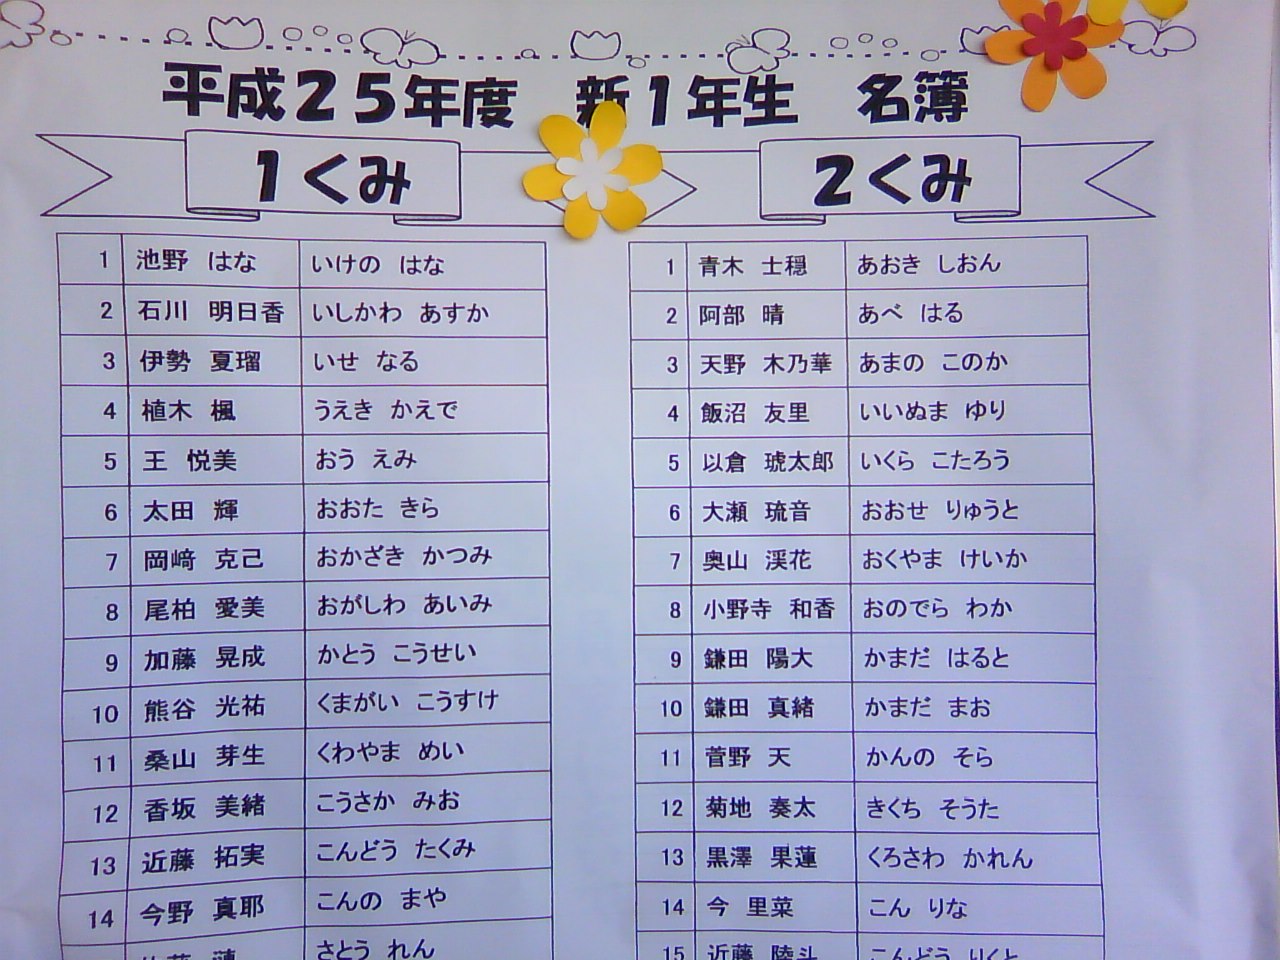 平成25年度 新1年生 名簿
1くみ
1 池野 はな いけの はな
2 石川 明日香 いしかわ あすか
3 伊勢 夏瑠 いせ なる
4 植木 楓 うえき かえで
5 王 悦美 おう えみ
6 太田 輝 おおた きら
7 岡﨑 克己 おかざき かつみ
8 尾柏 愛美 おがしわ あいみ
9 加藤 晃成 かとう こうせい
10 熊谷 光祐 くまがい こうすけ
11 桑山 芽生 くわやま めい
12 香坂 美緒 こうさか みお
13 近藤 拓実 こんどう たくみ
14 今野 真耶 こんの まや
さとう れん
2くみ
1 青木 士穏 あおき しおん
2 阿部 晴 あべ はる
3 天野 木乃華 あまの このか
4 飯沼 友里 いいぬま ゆり
5 以倉 琥太郎 いくら こたろう
6 大瀬 琉音 おおせ りゅうと
7 奥山 渓花 おくやま けいか
8 小野寺 和香 おのでら わか
9 鎌田 陽大 かまだ はると
10 鎌田 真緒 かまだ まお
11 菅野 天 かんの そら
12 菊地 奏太 きくち そうた
13 黒澤 果蓮 くろさわ かれん
14 今 里菜 こん りな
15 近藤 陸斗 こんどう りくと